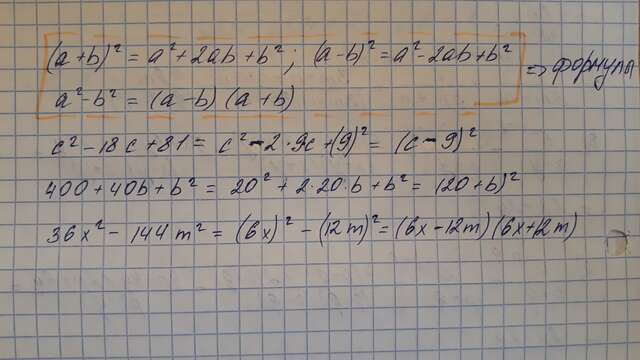 (a+b)² = a² + 2ab + b² ; (a-b)² = a² - 2ab + b² => формулы
a² - b² = (a - b) (a + b)
c² - 18c + 81 = c² - 2·9c + (9)² = (c - 9)²
400 + 40b + b² = 20² + 2·20·b + b² = (20+b)²
36x² - 144m² = (6x)² - (12m)² = (6x - 12m) (6x + 12m)